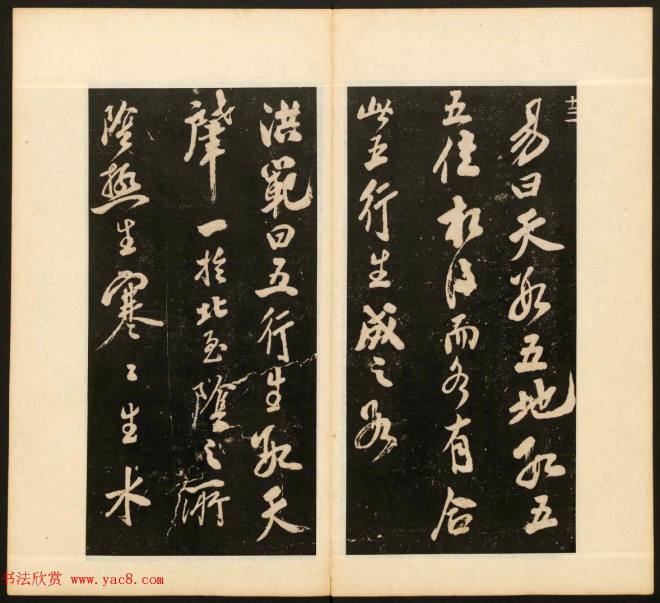 十三
易曰天數五地數五
五位相得而各有合
此五行生成之數
洪範曰五行生數天
肇一於北至陰之所
陰極生寒〻生水
书法欣赏 www.yac8.com